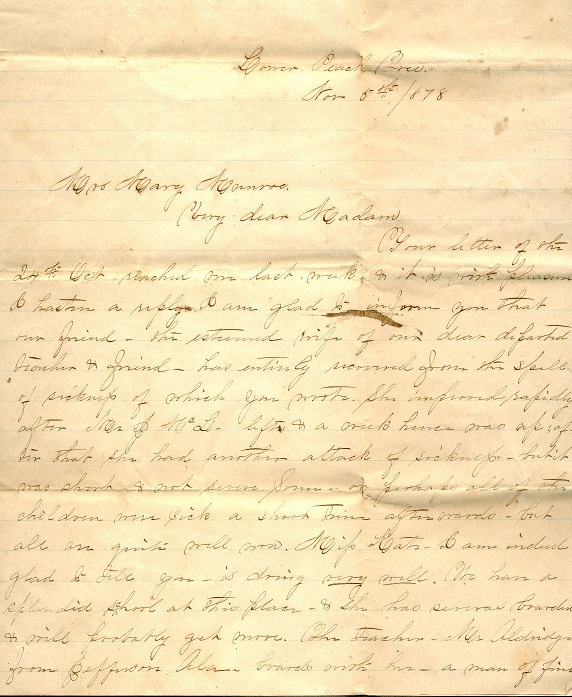 Lower Peach Tree.
Nov 5th /878
Mrs Mary Munroe.
Very dear Madam
Your letter of the
24th Oct. reached me last week, & it is with pleasure
I hasten a reply. I am glad to inform you that
our friend - the esteemed wife of our dear departed
teacher & friend - has entirely recovered from the spell
of sickness of which you wrote. She improved rapidly
after Mr J McL. left & a week hence was up; af
ter that she had another attack of sickness - but it
was short & not severe. Some - or perhaps all of the
children were sick a short time afterwards - but
all are quite well now. Miss Kate - I am indeed
glad to tell you - is doing very well. We have a
splendid school at this place - & she has several boarders
& will probably get more. The teacher - Mr Aldridge
from Jefferson Ala - boards with her - a man of fine